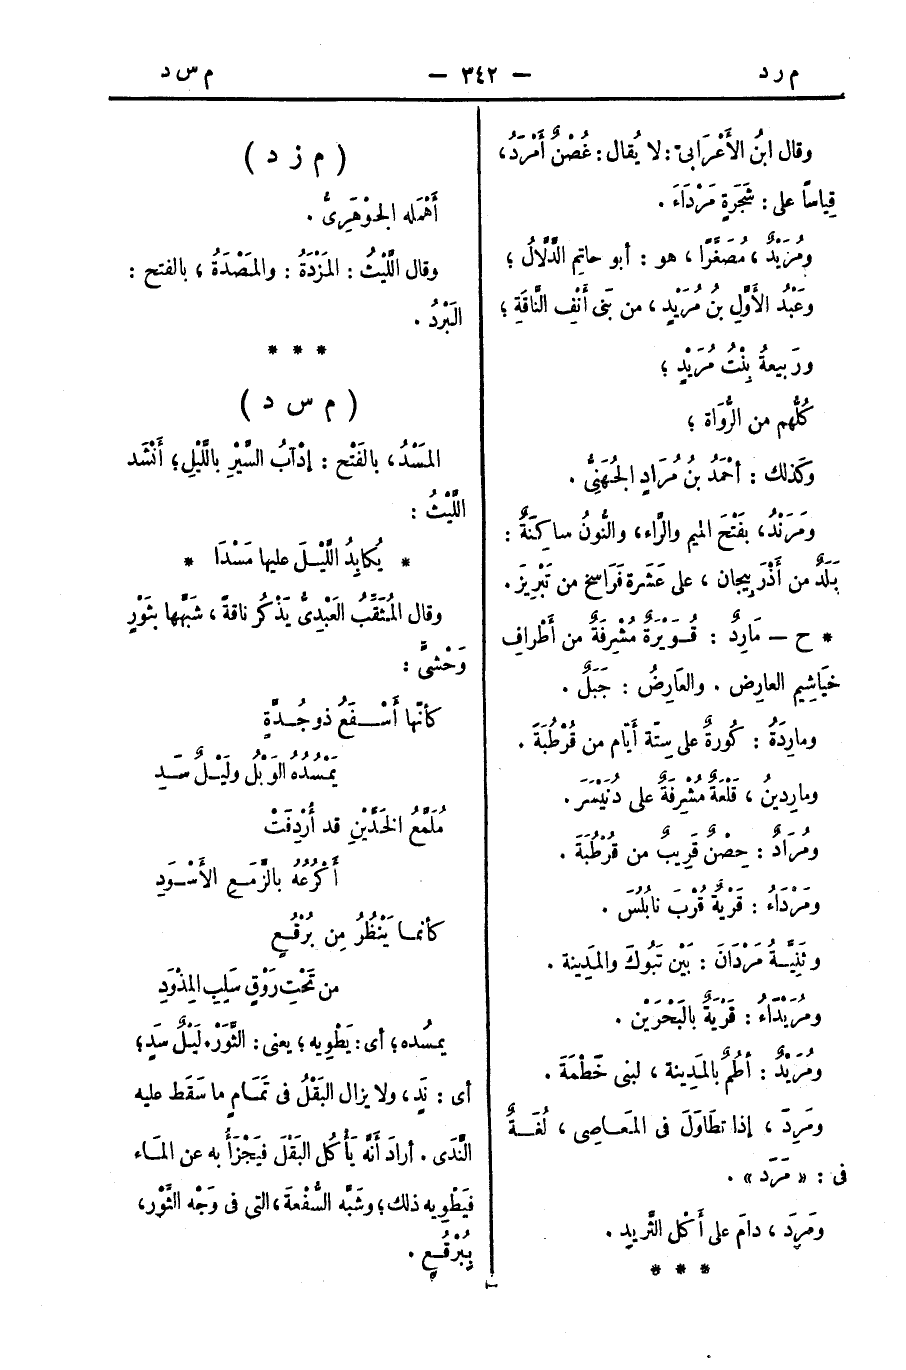 م ر د — ٣٤٢ — م س د
وقال ابنُ الأَعْرَابىّ: لا يُقال: غُصْنٌ أَمْرَدُ،
قِياسًا على: شَجَرَةٍ مَرْدَاءَ.
ومُرَيْدٌ، مُصَغَّرًا، هو: أبو حاتِم الدَّلَّالُ؛
وعَبْدُ الأَوَّلِ بنُ مُرَيْدٍ، من بَنى أَنْفِ النَّاقَةِ؛
ورَبيعةُ بِنْتُ مُرَيْدٍ؛
كُلُّهم من الرُّوَاة؛
وكَذلك: أحْمَدُ بنُ مُرَادٍ الجُهَنِىُّ.
ومَرَنْدُ، بفَتْحَ الميم والرَّاء، والنُّونُ ساكِنَةٌ:
بَلَدٌ من أَذْرَبِيجان، على عَشَرة فَرَاسِخ من تَبْرِيزَ.
* ح — مَارِدٌ: قُوَيْرَةٌ مُشْرِفَةٌ من أَطْرافِ
خَيَاشِيم العارِض. والعَارِضُ: جَبَلٌ.
ومارِدَةُ: كُورةٌ على ستّة أيّام من قُرْطُبَةَ.
وماردينُ، قَلْعَةٌ مُشْرِفَةٌ على دُنَيْسَرَ.
ومُرَادٌ: حِصْنٌ قَرِيبٌ من قُرْطُبَةَ.
ومَرْدَاءُ: قَرْيةٌ قُرْبَ نابُلُسَ.
وثَنِيَّةُ مَرْدَانَ: بَيْن تَبُوكَ والمَدِينة.
ومُرَيْدَاءُ: قَرْيَةٌ بالبَحْرَيْن.
ومُرَيْدٌ: أُطُمٌ بالمَدِينة، لبنى خَطْمَةَ.
ومَرِدَ، إذا تطَاوَلَ فى المَعاصِى، لُغَةٌ
فى: «مَرَد».
ومَرِدَ، دامَ على أَكْل الثَّرِيدِ.
* * *
(م ز د)
أَهْمَله الجوْهَرِىُّ.
وقال اللَّيْثُ: المَزْدَةُ: والمَصْدَةُ، بالفتح:
البَرْدُ.
* * *
(م س د)
المَسْدُ، بالفَتْح: إدْآبُ السَّيْرِ باللَّيْلِ؛ أَنْشَد
اللَّيْثُ:
* يُكابِدُ اللَّيْلَ عليها مَسْدَا *
وقال المُثَقَّبُ العَبْدِىُّ يَذْكُر ناقةً، شَبَّهها بثَوْرٍ
وَحْشىٍّ:
كأنّها أَسْفَعُ ذو جُدَّةٍ
يَمْسُدُه الوَبْلُ ولَيْلٌ سَدِ
مُلَمَّعُ الخَدَّيْنِ قد أُرْدِفَتْ
أَكْرُعُهُ بالزَّمَعِ الأَسْوَدِ
كأنما يَنْظُرُ مِن بُرْقُعٍ
من تَحْتِ رَوْقٍ سَلِبِ المِذْوَدِ
يمسُده؛ أى: يَطْوِيه؛ يعنى: الثَّوْرَ. لَيْلٌ سَدٍ؛
أى: نَدٍ، ولا يزال البَقْلُ فى تَمَامٍ ما سَقَط عليه
النَّدَى. أرادَ أنَّه يَأْكل البَقْلَ فيَجْزَأُ به عن المَاء
فيَطْوِيه ذلك؛ وشَبَّه السُّفْعَةَ، التى فى وَجْه الثَّوْر،
بِبُرْقُعٍ.